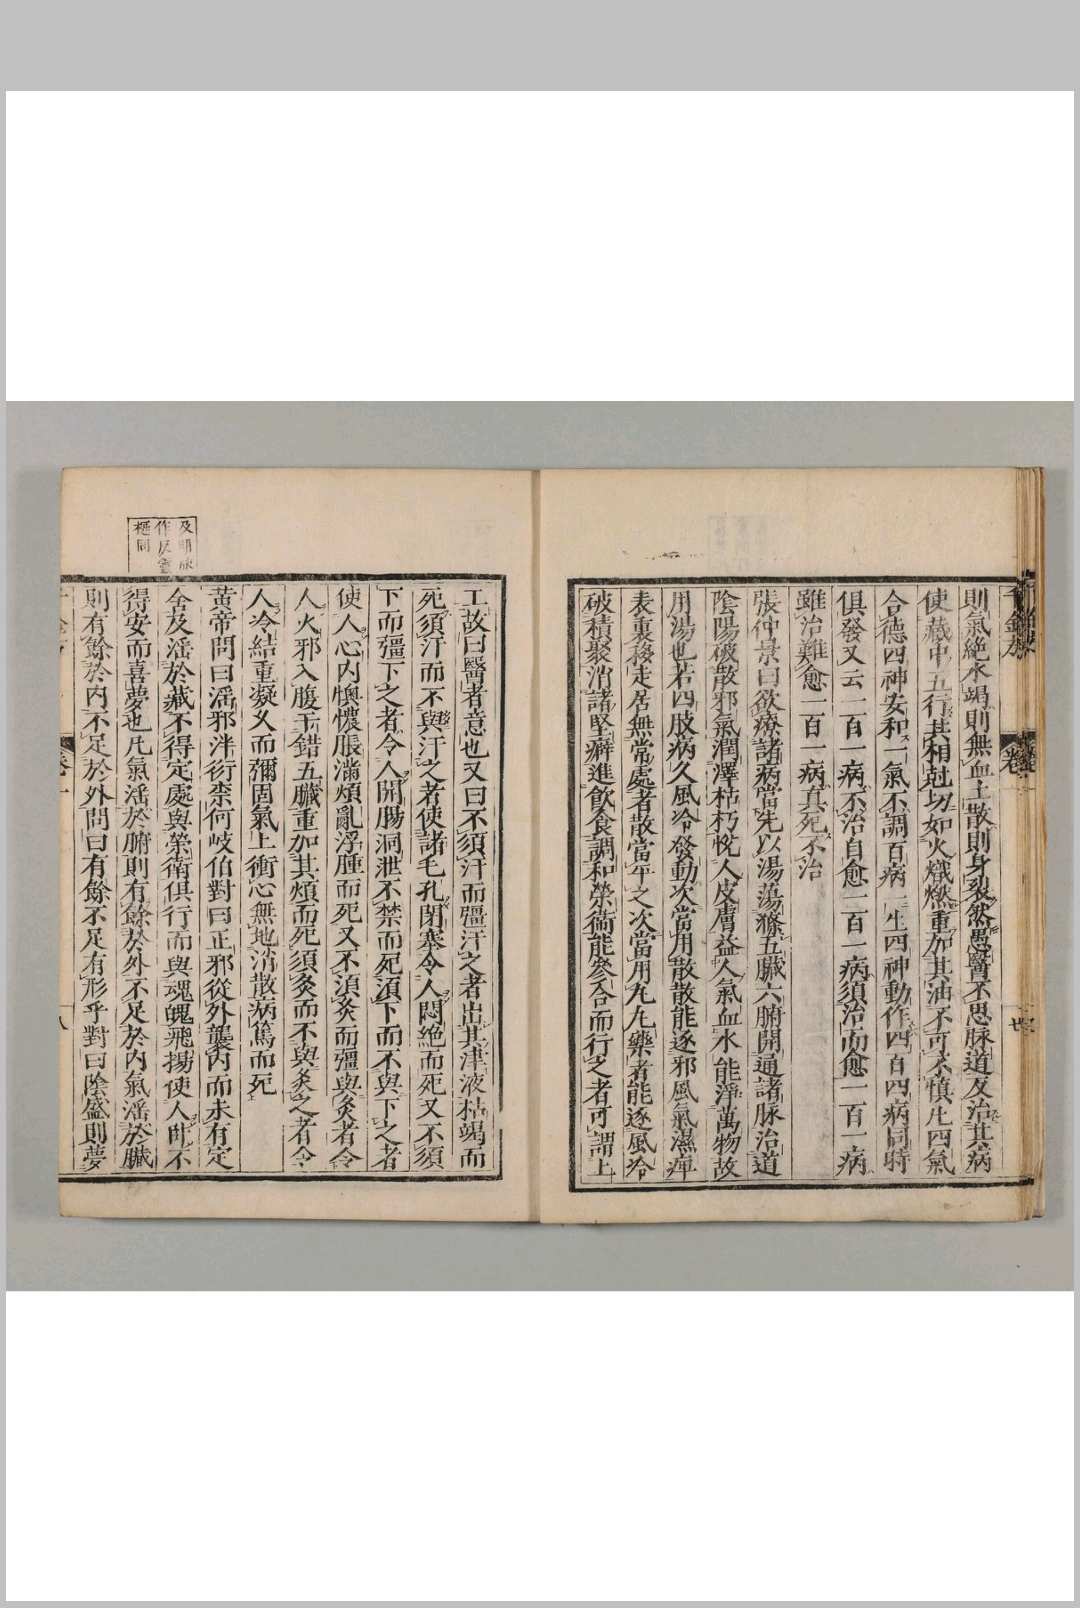 則氣絶水竭則無血土散則身裂然愚醫不思脉道反治其病
使藏中五行共相尅切如火熾燃重加其油不可不慎凡四氣
合德四神安和一氣不調百病一生四神動作四百四病同時
俱發又云一百一病不治自愈一百一病須治而愈一百一病
雖治難愈一百一病真死不治
張仲景曰欲療諸病當先以湯蕩滌五臟六腑開通諸脉治道
陰陽破散邪氣潤澤枯朽悅人皮膚益人氣血水能淨萬物故
用湯也若四肢病久風冷發動次當用散散能逐邪風氣濕痺
表裏移走居無常處者散當平之次當用丸丸藥者能逐風冷
破積聚消諸堅癖進飲食調和榮衛能參合而行之者可謂上
工故曰醫者意也又曰不須汗而彊汗之者出其津液枯竭而
死須汗而不與汗之者使諸毛孔閉塞令人悶絶而死又不須
下而彊下之者令人開腸洞泄不禁而死須下而不與下之者
使人心内懊憹脹滿煩亂浮腫而死又不須灸而彊與灸者令
人火邪入腹干錯五臟重加其煩而死須灸而不與灸之者令
人冷結重凝久而彌固氣上衝心無地消散病篤而死
黃帝問曰淫邪泮衍柰何岐伯對曰正邪從外襲内而未有定
舍及淫於藏不得定處與榮衛俱行而與魂魄飛揚使人臥不
得安而喜夢也凡氣淫於腑則有餘於外不足於内氣淫於臟
則有餘於内不足於外問曰有餘不足有形乎對曰陰盛則夢